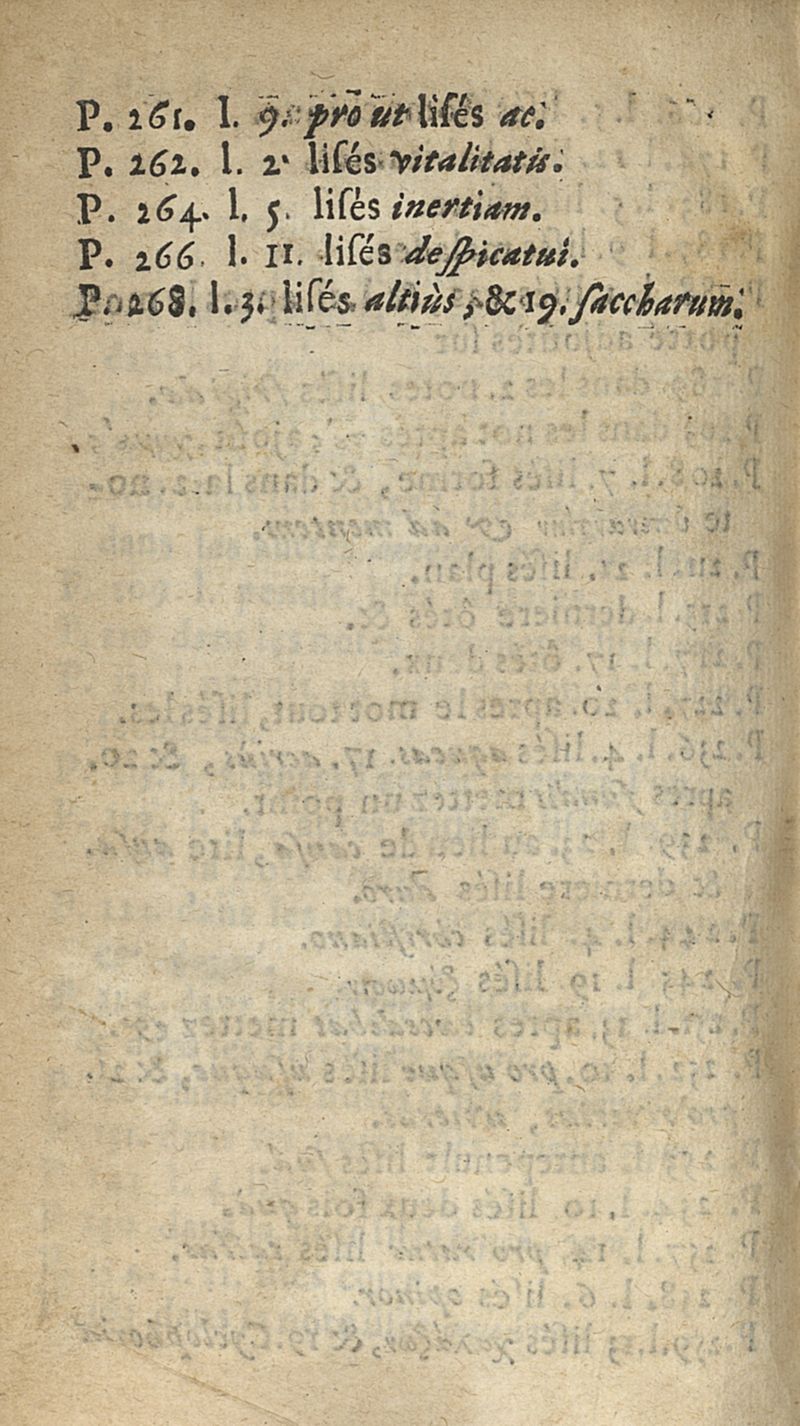 P. 261. l. 9. pro ut liſés ac.
P. 262. l. 2. liſés vitalitatis.
P. 264. l. 5. liſès inertiam.
P. 266. l. 11. liſés deſpicatui.
P. 268. l. 3. liſés altiùs, & 19. ſaccharum.